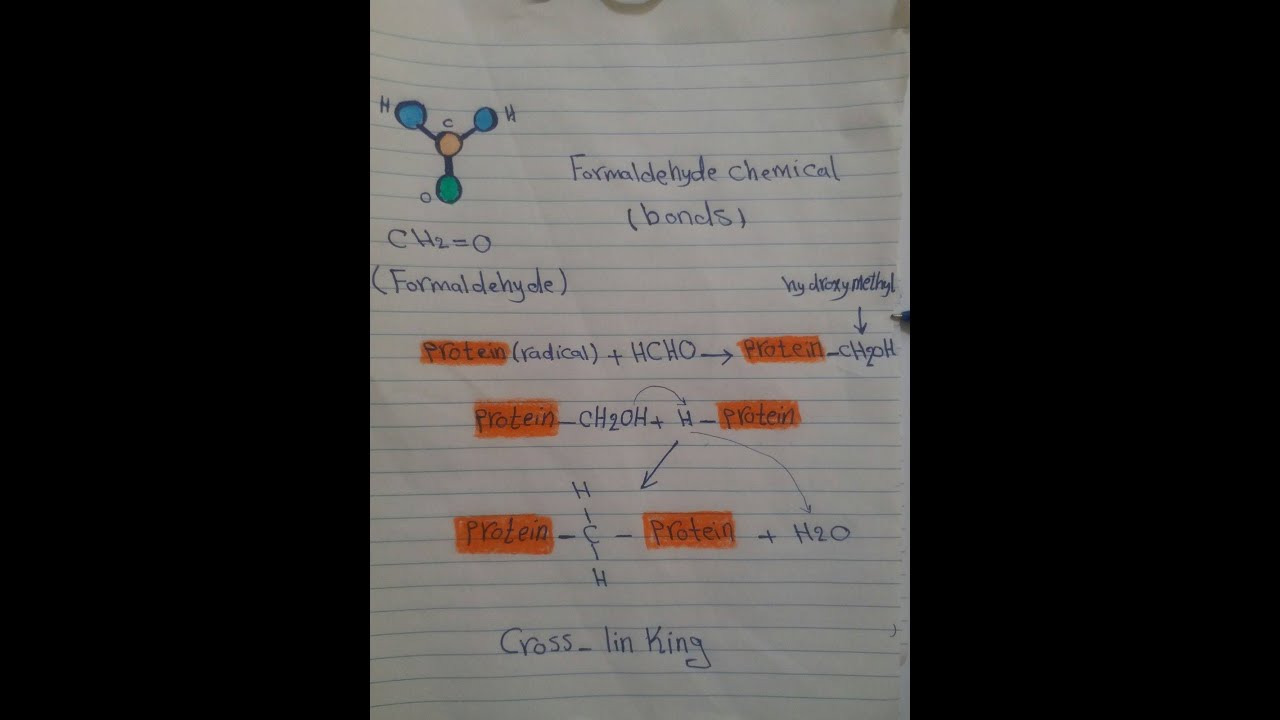 H H
C
O
Formaldehyde chemical
(bonds)
CH2=O
(Formaldehyde)
hydroxymethyl
Protein (radical) + HCHO → Protein -CH2OH
Protein -CH2OH + H - Protein
H
Protein - C - Protein + H2O
H
Cross- lin King